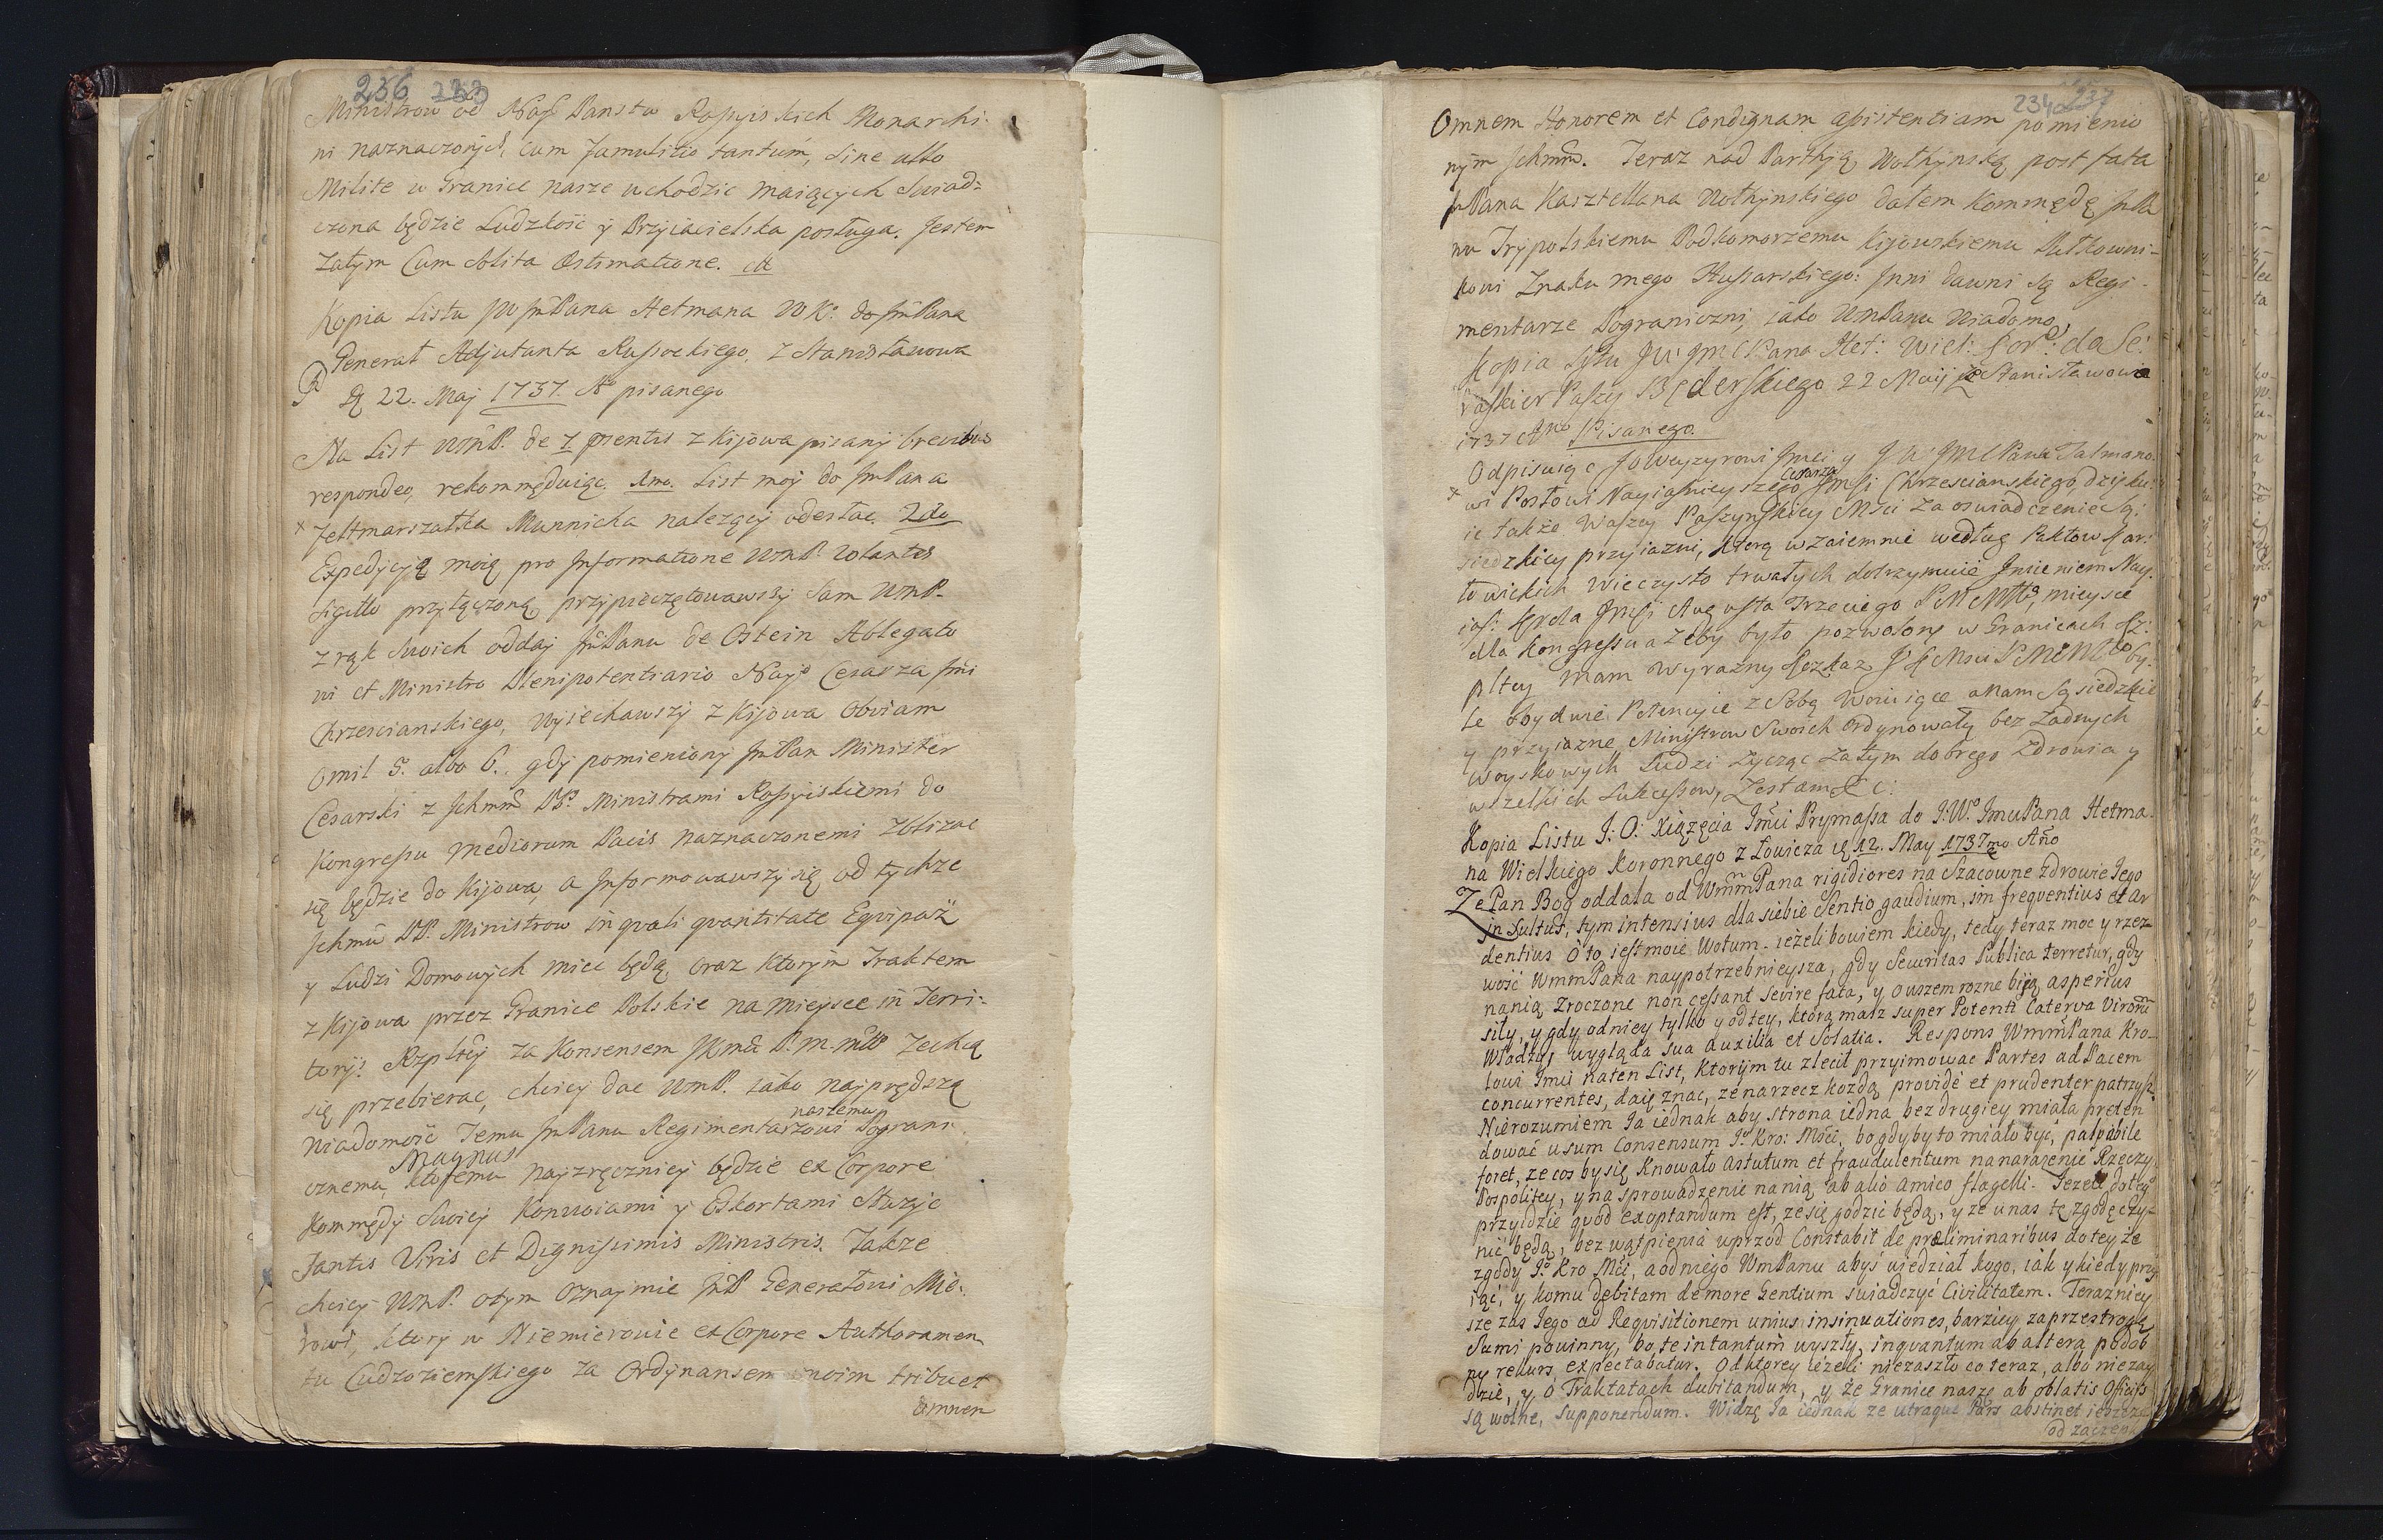 256 233
Ministrow od Nayj. Panstw Rossyiskich Monarchi-
ni naznaczonych, cum famulitio tantum, sine ullo
Milite w Granice nasze wchodzic maiących swiad-
czona będzie Ludzkość y Przyiacielska posługa. Jestem
zatym Cum Oblita Æstimatione. etc
Kopia Listu JW JmPana Hetmana WK: do JmPana
Generał Adjutanta Russockiego, z Stanisławowa
D 22. Maj 1737. Ao pisanego
Na List WmP. de 7 prsentis z Kijowa pisany brevibus
respondeo, rekommęduiąc. 1mo. List moy do JmPana
Feltmarszałka Munnicha nalezący odesłac. 2do
Expedycyją moię pro Informatione WmP. volantes
sigillo przyłączoną przypieczętowawszy sam WmP.
z rąk swoich odday JmPanu de Ostein Ablegato
ni et Ministro Plenipotentiario Nayjo Cesarza Jmi
Chrzescianskiego, wyiechawszy z Kijowa obviam
o mil 5. albo 6., gdy pomieniony JmPan Minister
Cesarski z Ichmm PP. Ministrami Rossyiskiemi do
Kongressu mediorum Pacis naznaczonemi zblizac
się będzie do Kijowa, a Informowawszy się od tychze
Ichmm PP. Ministrow in quali quantitate Eqvipaż
y Ludzi Domowych miec będą, oraz ktorym Traktem
z Kijowa przez Granice Polskie na mieysce in Terri-
torijs Rzpltey za Konsensem JKmci P. m. mWo Zechcą
się przebierac, chciey dac WmP. iako nayprędszą
wiadomość Temu JmPanu Regimentarzowi naszemu Pograni
cznemu, ktoremu Magnus nayzręczniey będzie ex Corpore
Kommędy swoiey Konwoiami y Eskortami służyc
Tantis Viris et Dignissimis Ministris. Takze
chciey WmP. o tym oznaymic JmP Generałowi Mie-
rowi, ktory w Niemierowie ex Corpore Authoramen
tu Cudzoziemskiego za Ordynansem moim tribuet
omnem
234 237
Omnem Honorem et Condignam assistentiam pomienio
nym Ichmm. Teraz nad Partyją Wołhynską post fata
JmPana Kasztellana Wołhynskiego dałem Kommędę JmPa
nu Trypolskiemu Podkomorzemu Kijowskiemu Pułkowni-
kowi Znaku mego Hussarskiego: Inni dawni są Regi-
mentarze Pograniczni, iako WmPanu wiadomo,
Kopia Lystu JW JMCPana Het: Wiel: Kor: do Se:
raskier Paszy Będerskiego 22 Maij ze Stanisławowa
1737 Ano Pisanego.
Odpisuiąc Jo Wezyrowi Jmci y J W JMCPanu Talmano
wi Posłowi Nayiasnieyszego Cesarza Jmsi Chrzescianskiego, dzięku-
ię także Waszey Paszynskiey Msci za oswiadczenie Są:
siedzkiey przyiazni, ktorą wzaiemnie według Paktow Kar:
łowickich wieczysto trwałych dotrzymuie Imieniem Nay.
ias: Krola Jmsi Augusta Trzeciego PMMMWo, mieysce
dla Kongressu azeby było pozwolone w Granicach Rz:
pltey mam wyrazny Rozkaz JKMsci PMMMWo by-
le obydwie Potencyie z Sobą woiuiące a Nam Sąsiedzkie
y przyiazne Ministrow Swoich Ordynowały bez Zadnych
Woyskowych Ludzi zycząc zatym dobrego Zdrowia y
wszelkich Sukcessow, Zestam &c:
Kopia Listu J: O: Xiązęcia Jmci Prymassa do J:W. JmuPana Hetma-
na Wielkiego Koronnego z Łowicza D 12. May 1737mo Ano
Ze Pan Bog oddala od WmmPana rigidiores na Szacowne zdrowie Jego
insultus, tym intensius dla siebie Sentio gaudium, im freqventius et ar
dentius o to iest moie Wotum. ieżeli bowiem kiedy, tedy teraz moc y rzez-
wość WmmPana naypotrzebnieysza, gdy Securitas Publica terretur, gdy
na nią zroczone non cessant sevire fata, y owszem rozne biją asperius
siły, y gdy od niey tylko y od tey, ktorą masz super Potenti Caterva Virorum
Władzy wygląda sua auxilia et Solatia. Respons WmmPana Kro-
lowi Jmci na ten List, ktorym tu zlecił przyimowac Partes ad Pacem
concurrentes, daię znac, ze na rzecz kozdą providè et prudenter patrzysz.
Nierozumiem Ja iednak aby strona iedna bez drugiey miała preten
dować usum Consensum Jo Kro: Mści, bo gdyby to miało być, palpabile
foret, ze cos by się knowało astutum et fraudulentum na narazenie Rzeczy
Pospolitey, y na sprowadzenie na nią ab alio amico flagelli. Jezeli do tego
przyidzie quod exoptandum est, ze się godzic będą, y ze u nas tę zgodę czy-
nić będą, bez wątpienia uprzod Constabit de præliminaribus do tey że
zgody Jo Kro Mści, a od niego WmPanu abyś wiedział kogo, iak y kiedy przy
iąć, y komu debitam de more Gentium swiadczyć Civilitatem. Terazniey
sze zaś Jego ad Reqvisitionem unius insinuationes, barziey za przestrogę
Sami powinny, bo te in tantum wyszły, inqvantum ab altera podob
ny rekurs expectabatur. Od ktorey ieżeli niezaszło co teraz, albo niezay
dzie, y o Traktatach dubitandum, y że Granice nasze ab oblatis Officijs
są wolne, supponendum. Widzę Ja iednak ze utraque Pars abstinet ieszcze
od zaczen